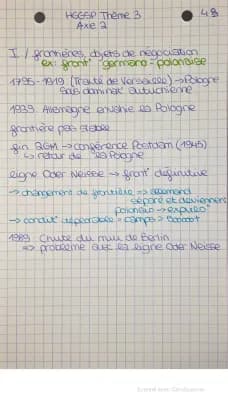 HGGSP Thème 3
Axe 2
48
I / frontières, objets de négociation
ex: front° germano-polonaise
1795-1919 (Traité de Versailles) → Pologne
sous dominat° autrichienne
1939 Allemagne envahie la Pologne
frontière pas stable
fin 2GM → conférence Postdam (1945)
↳ retour de la Pologne
ligne Oder Neisse → front° définitive
→ changement de frontière => allemand
séparé et deviennent
polonais → expulsé°
→ conduit° déplorable = camps > 500000†
1989 Chute du mur de Berlin
=> problème avec la ligne Oder Neisse